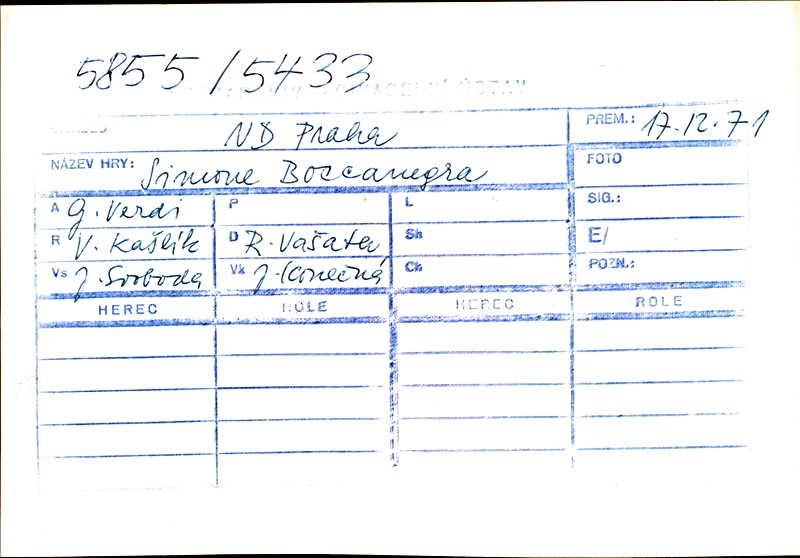 5855/5433
DIVADELNÍ ÚSTAV
DIVADLO ND Praha PREM.: 17.12.71
NÁZEV HRY: Simone Boccanegra FOTO
A G. Verdi P L SIG.:
R V. Kašlík D R. Vašata Sh E/
Vs J. Svoboda Vk J. Konečná Ch POZN.:
HEREC ROLE HEREC ROLE